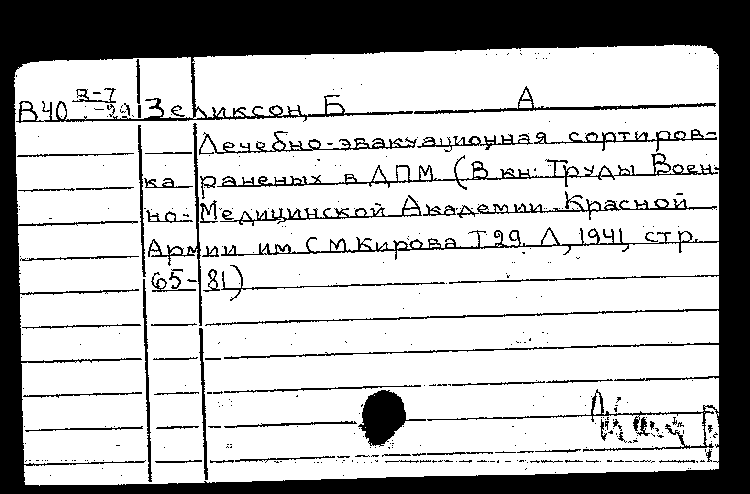 В40 3-7/-29 Зеликсон, Б А
Лечебно-эвакуационная сортиров=
ка раненых в ДПМ (В кн: Труды Воен-
но-Медицинской Академии Красной
Армии им. С М. Кирова Т 29. Л, 1941, стр.
65-81)